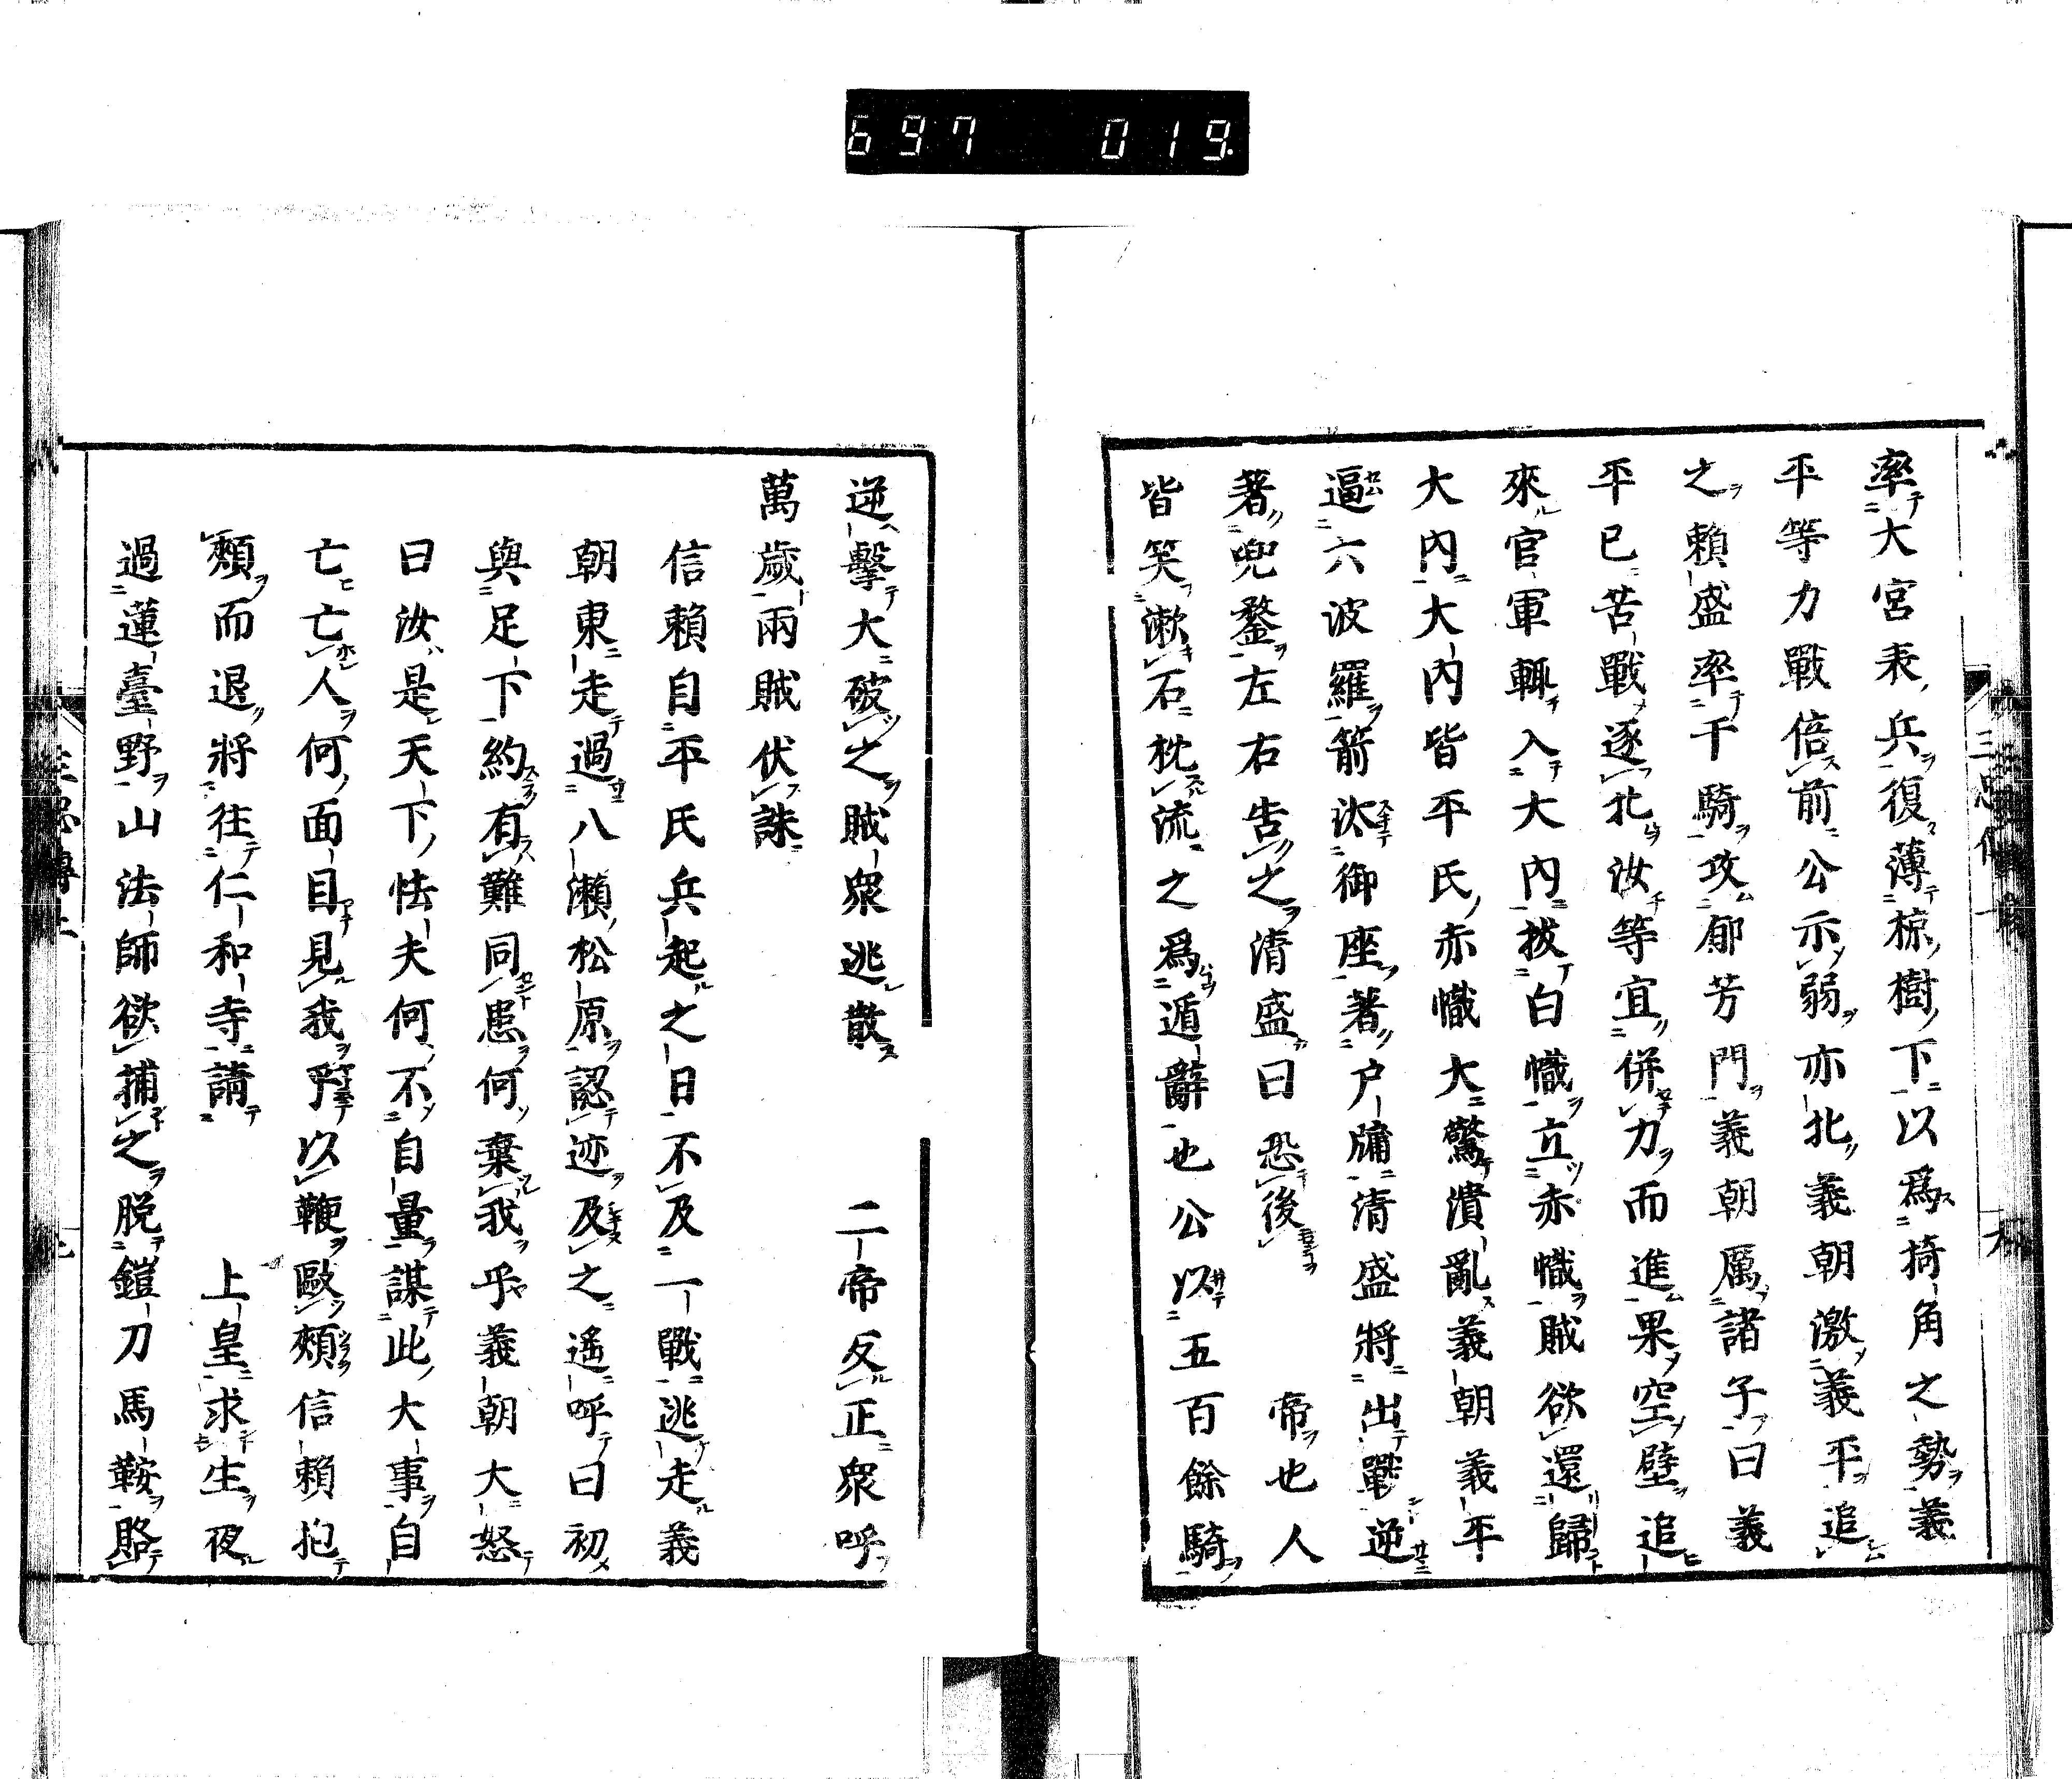 697 019
率大宮表兵復薄椋樹下以爲掎角之勢義
平等力戰倍前公示弱亦北義朝激義平追
之賴盛率千騎攻郁芳門義朝厲諸子曰義
平已苦戰逐北汝等宜併力而進果空壁追
來官軍輙入大內拔白幟立赤幟賊欲還歸
大內大內皆平氏赤幟大驚潰亂義朝義平
逼六波羅箭汰御座著戶牗清盛將出戰逆
著兜鍪左右告之清盛曰恐後 帝也人
皆笑漱石枕流之爲遁辭也公以五百餘騎
逆擊大破之賊衆逃散 二帝反正衆呼
萬歲兩賊伏誅
信賴自平氏兵起之日不及一戰逃走義
朝東走過八瀨松原認迹及之遙呼曰初
與足下約有難同患何棄我乎義朝大怒
曰汝是天下怯夫何不自量謀此大事自
亡亡人何面目見我乎以鞭毆頰信賴抱
頰而退將往仁和寺請 上皇求生夜
過蓮臺野山法師欲捕之脫鎧刀馬鞍賂